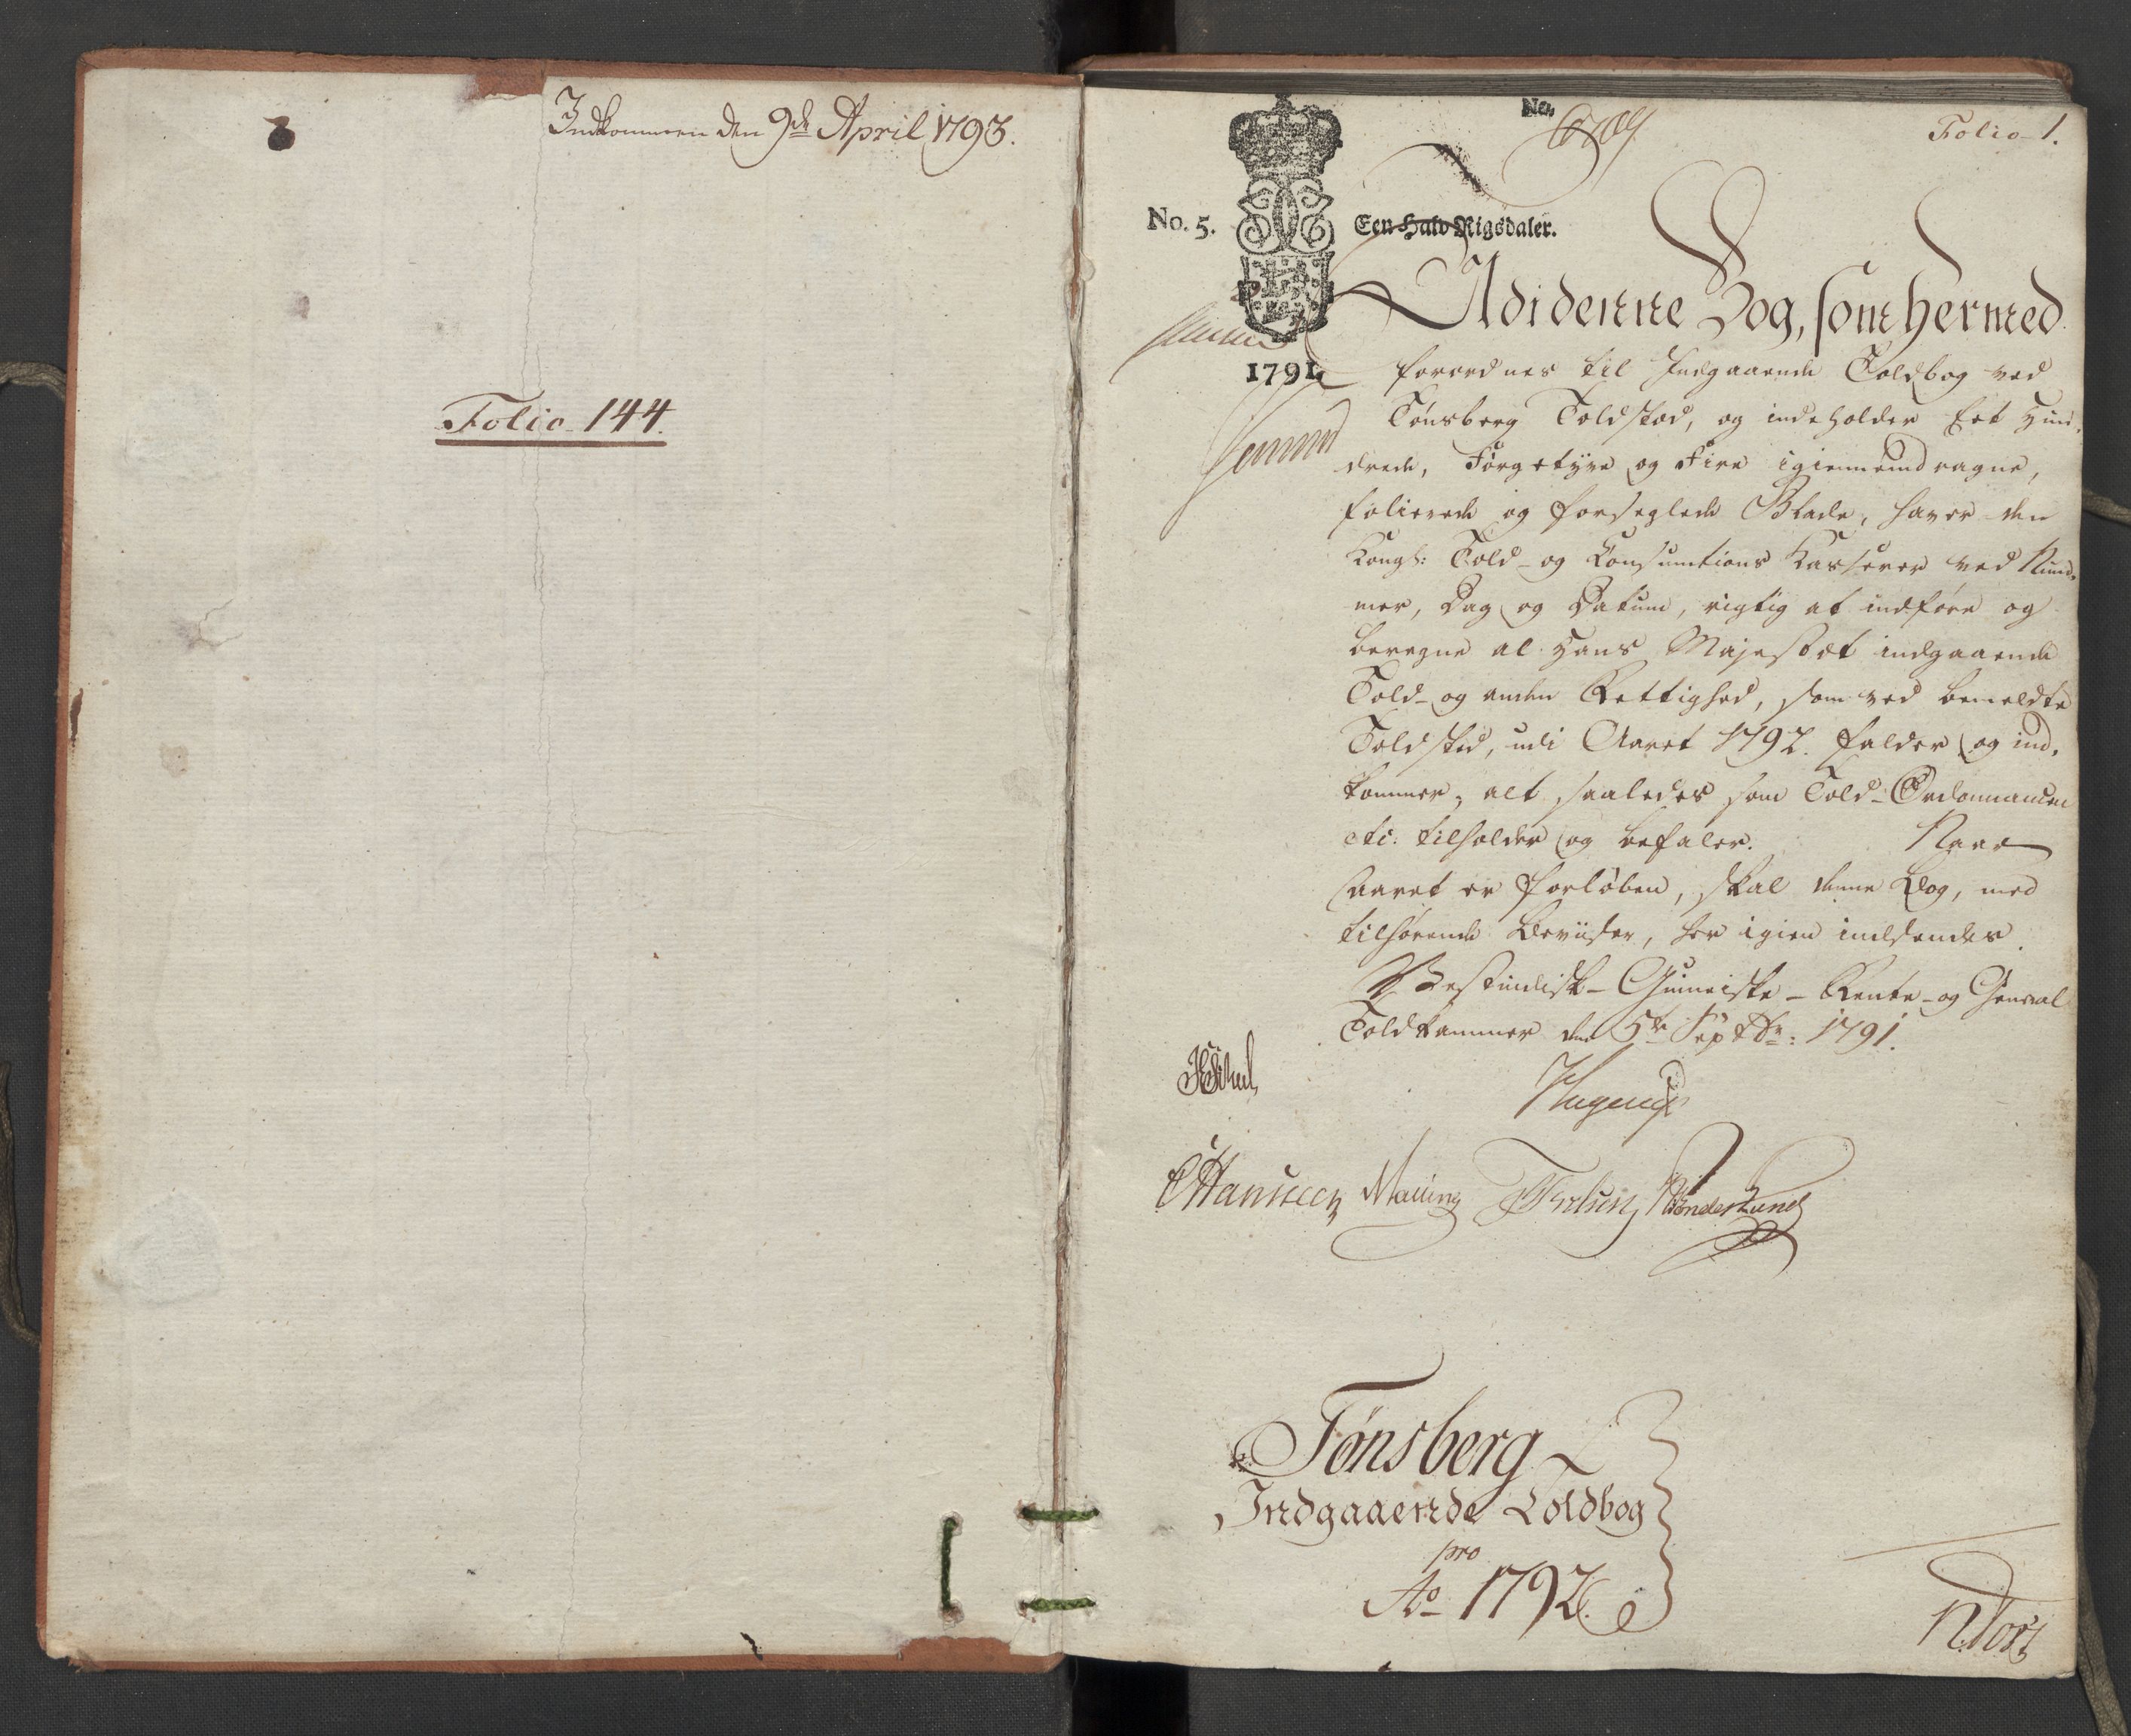 Indkommen den 9de April 1793.
Folio 144.
No.
Folio 1.
No. 5.
Een Halv Rigsdaler.
1791
Udi denne Bog, som hermed
forordnes til Indgaaende Toldbog ved
Tønsberg Toldsted, og indeholder Eet Hun-
drede, Førgetyve og Fire igiennemdragne,
folierede og forseglede Blade, haver den
Kongl: Told- og Consumtions Kasserer ved Num-
mer, Dag og Datum, rigtig at indføre og
beregne al Hans Majestæt indgaaende
Told- og anden Rettighed, som ved bemeldte
Toldsted, udi Aaret 1792. falder og ind-
kommer, alt saaledes som Told-Ordonnancen
etc: tilholder og befaler. Naar
Aaret er forløben, skal denne Bog, med
tilhørende Beviiser, her igien indsendes.
Vestindisk- Guineiske- Rente- og General
Toldkammer den 5te Septbr: 1791.
Hansteen Malling
Tønsberg
Indgaaende Toldbog
pro
Ao 1792.